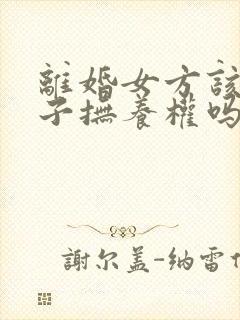 離婚女方該
子撫養權吗
謝尔盖-纳雷